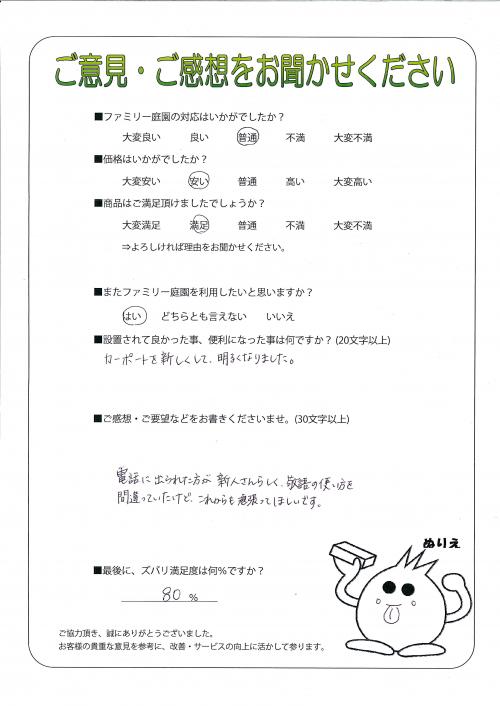 ご意見・ご感想をお聞かせください
■ファミリー庭園の対応はいかがでしたか？
大変良い 良い 普通 不満 大変不満
■価格はいかがでしたか？
大変安い 安い 普通 高い 大変高い
■商品はご満足頂けましたでしょうか？
大変満足 満足 普通 不満 大変不満
⇒よろしければ理由をお聞かせください。
■またファミリー庭園を利用したいと思いますか？
はい どちらとも言えない いいえ
■設置されて良かった事、便利になった事は何ですか？(20文字以上)
カーポートを新しくして、明るくなりました。
■ご感想・ご要望などをお書きくださいませ。(30文字以上)
電話に出られた方が新人さんらしく、敬語の使い方を
間違っていたけど、これからも頑張ってほしいです。
ぬりえ
■最後に、ズバリ満足度は何％ですか？
80 %
ご協力頂き、誠にありがとうございました。
お客様の貴重な意見を参考に、改善・サービスの向上に活かして参ります。